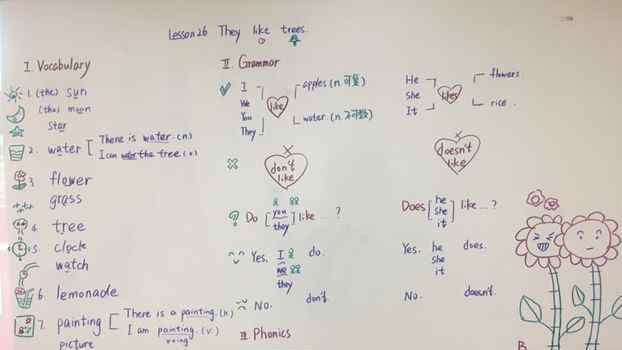 Lesson 26 They like trees.
I. Vocabulary
1. (the) sun
(the) moon
star
2. water
There is water. (n)
I can water the tree. (v)
3. flower
grass
4. tree
5. clock
watch
6. lemonade
7. painting
There is a painting. (n)
I am painting. (v)
v+ing
picture
II. Grammar
I
We
You
They
like
apples (n.可數)
water (n.不可數)
He
She
It
likes
flowers
rice.
don't like
doesn't like
? Do
you
they
like ...?
Does
he
she
it
like ...?
Yes, I do.
we
they
Yes, he does.
she
it
No. don't.
No. doesn't.
III. Phonics
B